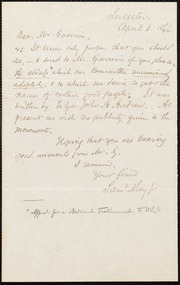 Leicester,
April 2. 186
Dear Mr. Garrison,
It seems only proper that you should
see, & send to Mr. Garrison if you please,
the address* which our Committee unanimously
adopted, & to which we desire to get the
names of certain good people. It was
written by Ex Gov. John A. Andrew. At
present we wish no publicity given to the
movement.
Hoping that you are having
good accounts from Mr. G.
I remain,
Your friend
Saml. May, Jr.
* Appeal for a National Testimonial to W.L.G.